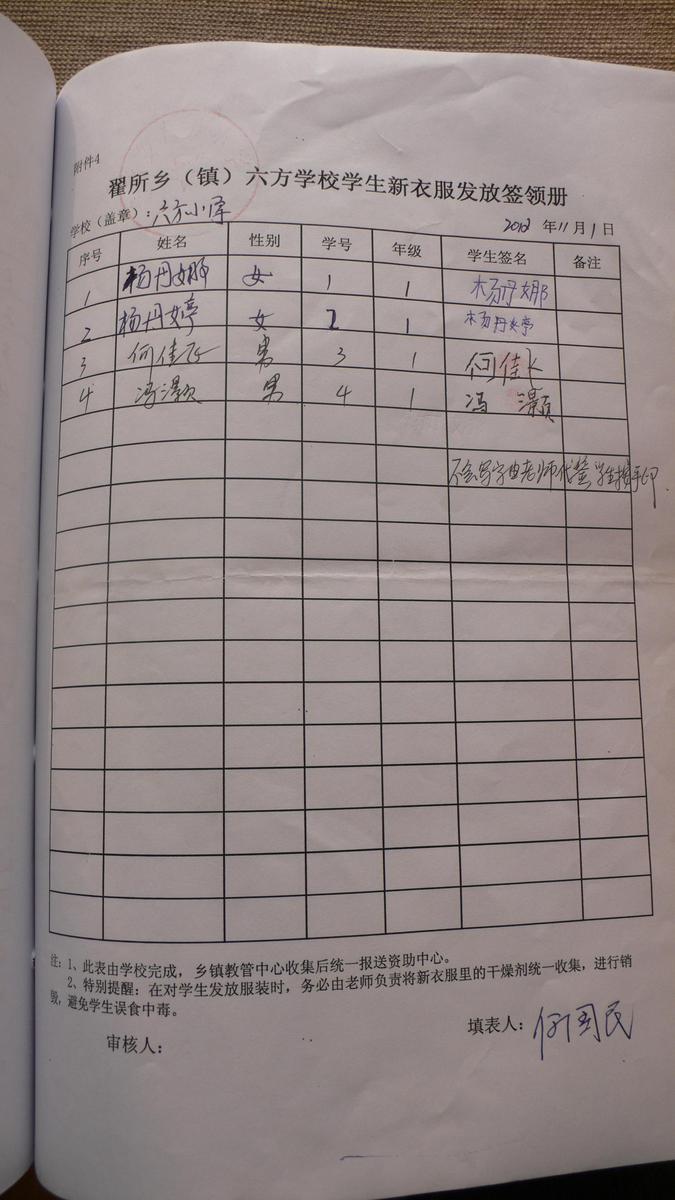 附件4
翟所乡（镇）六方学校学生新衣服发放签领册
学校（盖章）：六方小学 2012 年 11 月 1 日
序号 姓名 性别 学号 年级 学生签名 备注
1 杨丹娜 女 1 1 杨丹娜
2 杨丹婷 女 2 1 杨丹婷
3 何佳飞 男 3 1 何佳飞
4 冯灏 男 4 1 冯灏
不会写字由老师代签 学生摁手印
注：1、此表由学校完成，乡镇教管中心收集后统一报送资助中心。
2、特别提醒：在对学生发放服装时，务必由老师负责将新衣服里的干燥剂统一收集，进行销
毁，避免学生误食中毒。
填表人：何国民
审核人：